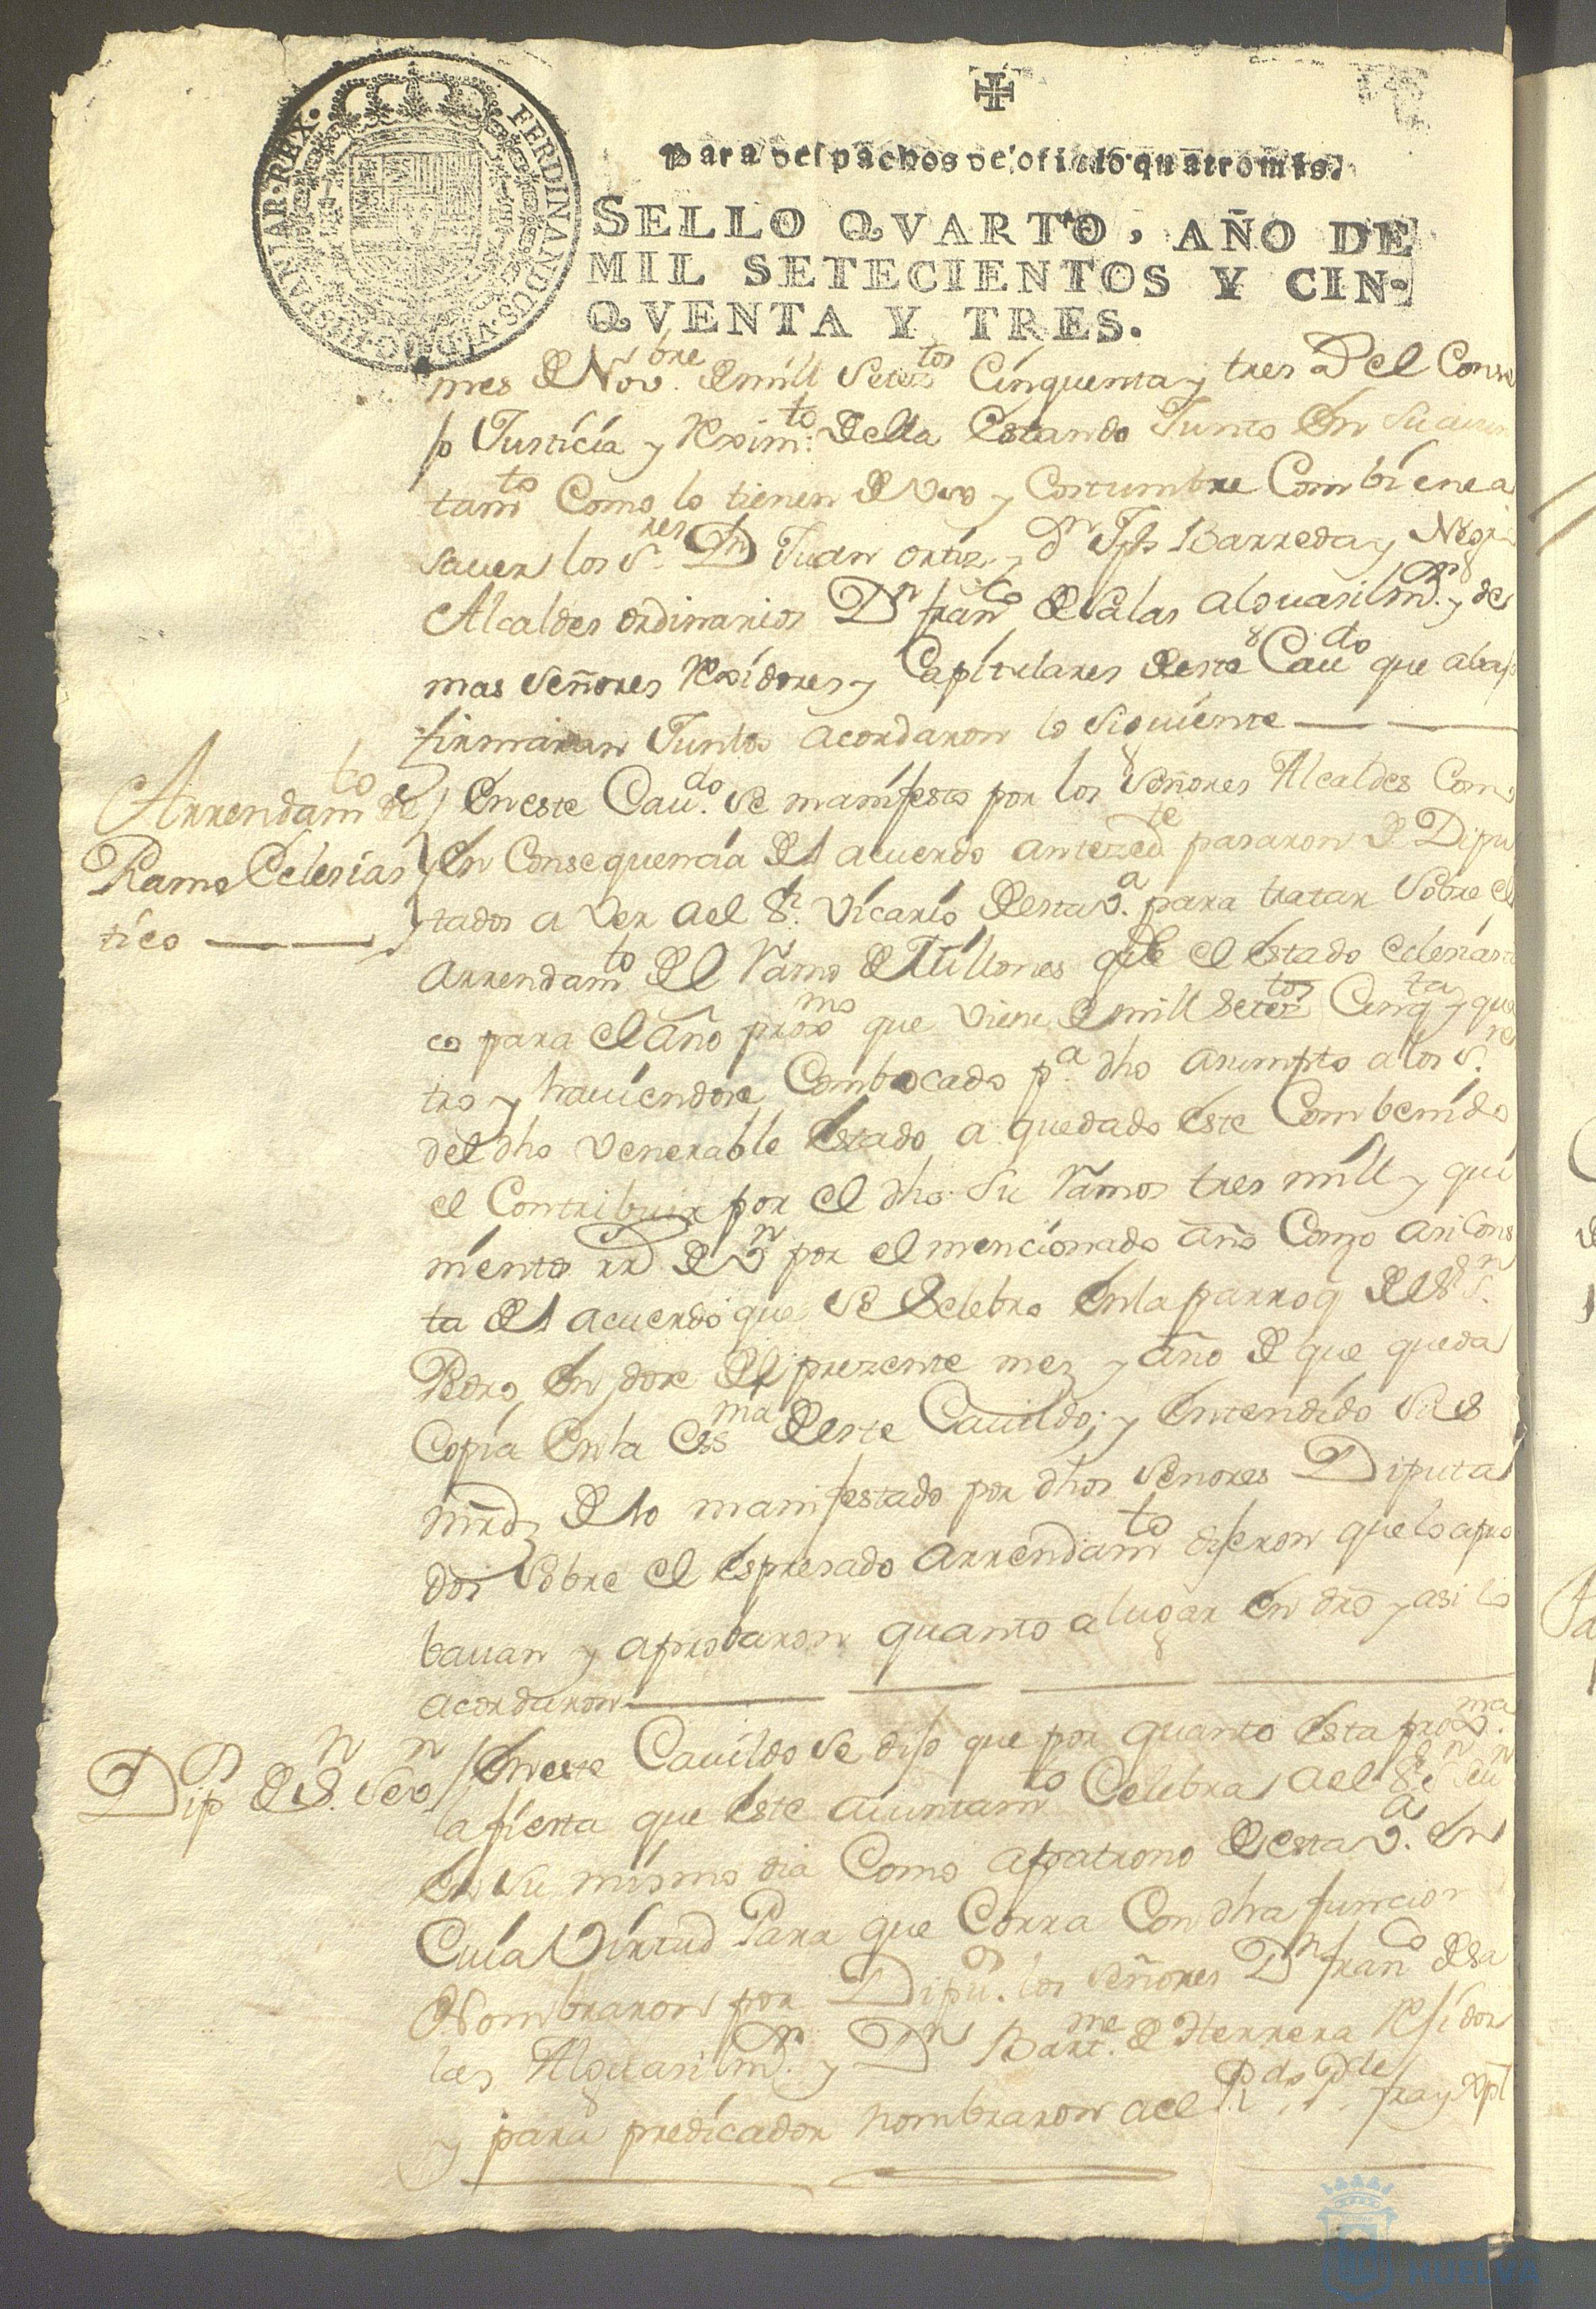 FERDINANDUS·VI·D·G·HISPANIAR·REX·
Para despachos de oficio quatro mrs.
SELLO QVARTO, AÑO DE
MIL SETECIENTOS Y CIN-
QVENTA Y TRES.
mes de Nov.bre de mill Setez.tos Cinquenta y tres el Conse
jo Justicia y Rexim.to della estando Junto en su aiun
tam.to Como lo tienen de uso y Costumbre Combiene a
saver los S.res Dn Juan ortiz y dn Jph Barreda y Negri
Alcaldes ordinarios Dn fran.co de Salas alguasil m.r y de
mas Señores Rexidores y Capitulares deste Cau.do que abajo
firmaran Juntos acordaron lo siguiente
Arrendam.to de
Ramo Eclesias
tico
en este Cau.do Se manifesto por los Señores Alcaldes Como
en Consequencia del acuerdo antezed.te pasaron de Dipu
tados a ver ael S.r Vicario desta V.a para tratar Sobre el
arrendam.to del Ramo de Millones que el estado eclesiasti
co para el año proxmo que viene de mill Setez.tos Cinq.ta y qua
tro y haviendose Combocado p.a dho asumpto a los S.res
del dho venerable estado a quedado este Combenido
el Contribuir por el dho Su Ramos tres mill y qui
nientos rrs de Vn por el mencionado año Como asi Cons
ta del acuerdo que se Selebro en la parroq del Sr Sn
Pedro en dose del prezente mez y año de que queda
Copia en la Essma deste Cavildo; y entendido Sus
mrds de lo manifestado por dhos Señores Diputa
dos Sobre el espresado arrendam.to dijeron que lo apro
bavan y aprobaron quanto a lugar en dro y asi lo
acordaron
Dip.s de S.n Sevn
En este Cavildo se dijo que por quanto esta proxma
la fiesta que este aiuntam.to Celebra ael Sr Sn Sevn
en su mismo dia Como a patrono desta V.a en
Cuia Virtud Para que Corra Con dha funcion
Nombraron por Dipu.os los Señores Dn fran.co de Sa
las Alguasil m.r y Dn Bart.me de Herrera Rexidor
y para predicador nombraron ael R.do P.de fray
HUELVA